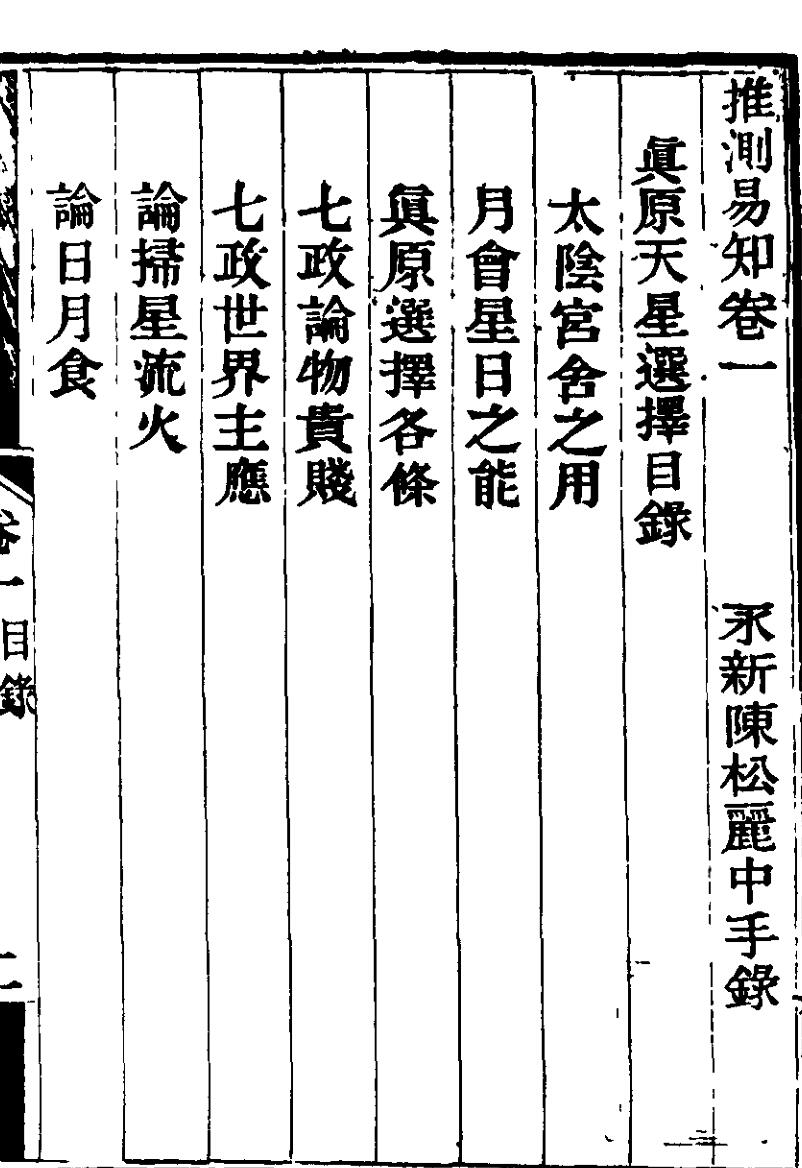 推測易知卷一 永新陳松麗中手錄
眞原天星選擇目錄
太陰宮舍之用
月會星日之能
眞原選擇各條
七政論物貴賤
七政世界主應
論掃星流火
論日月食
卷一目錄